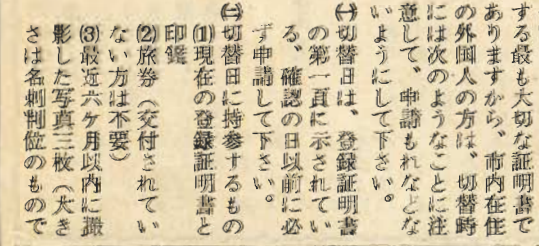 する最も大切な証明書で
ありますから、市内在住
の外国人の方は、切替時
には次のようなことに注
意して、申請もれなどな
いようにして下さい。
㈠切替日は、登録証明書
の第一頁に示されてい
る、確認の日以前に必
ず申請して下さい。
㈡切替日に持参するもの
⑴現在の登録証明書と
印鑑
⑵旅券（交付されてい
ない方は不要）
⑶最近六ケ月以内に撮
影した写真三枚（大き
さは名刺判位のもので